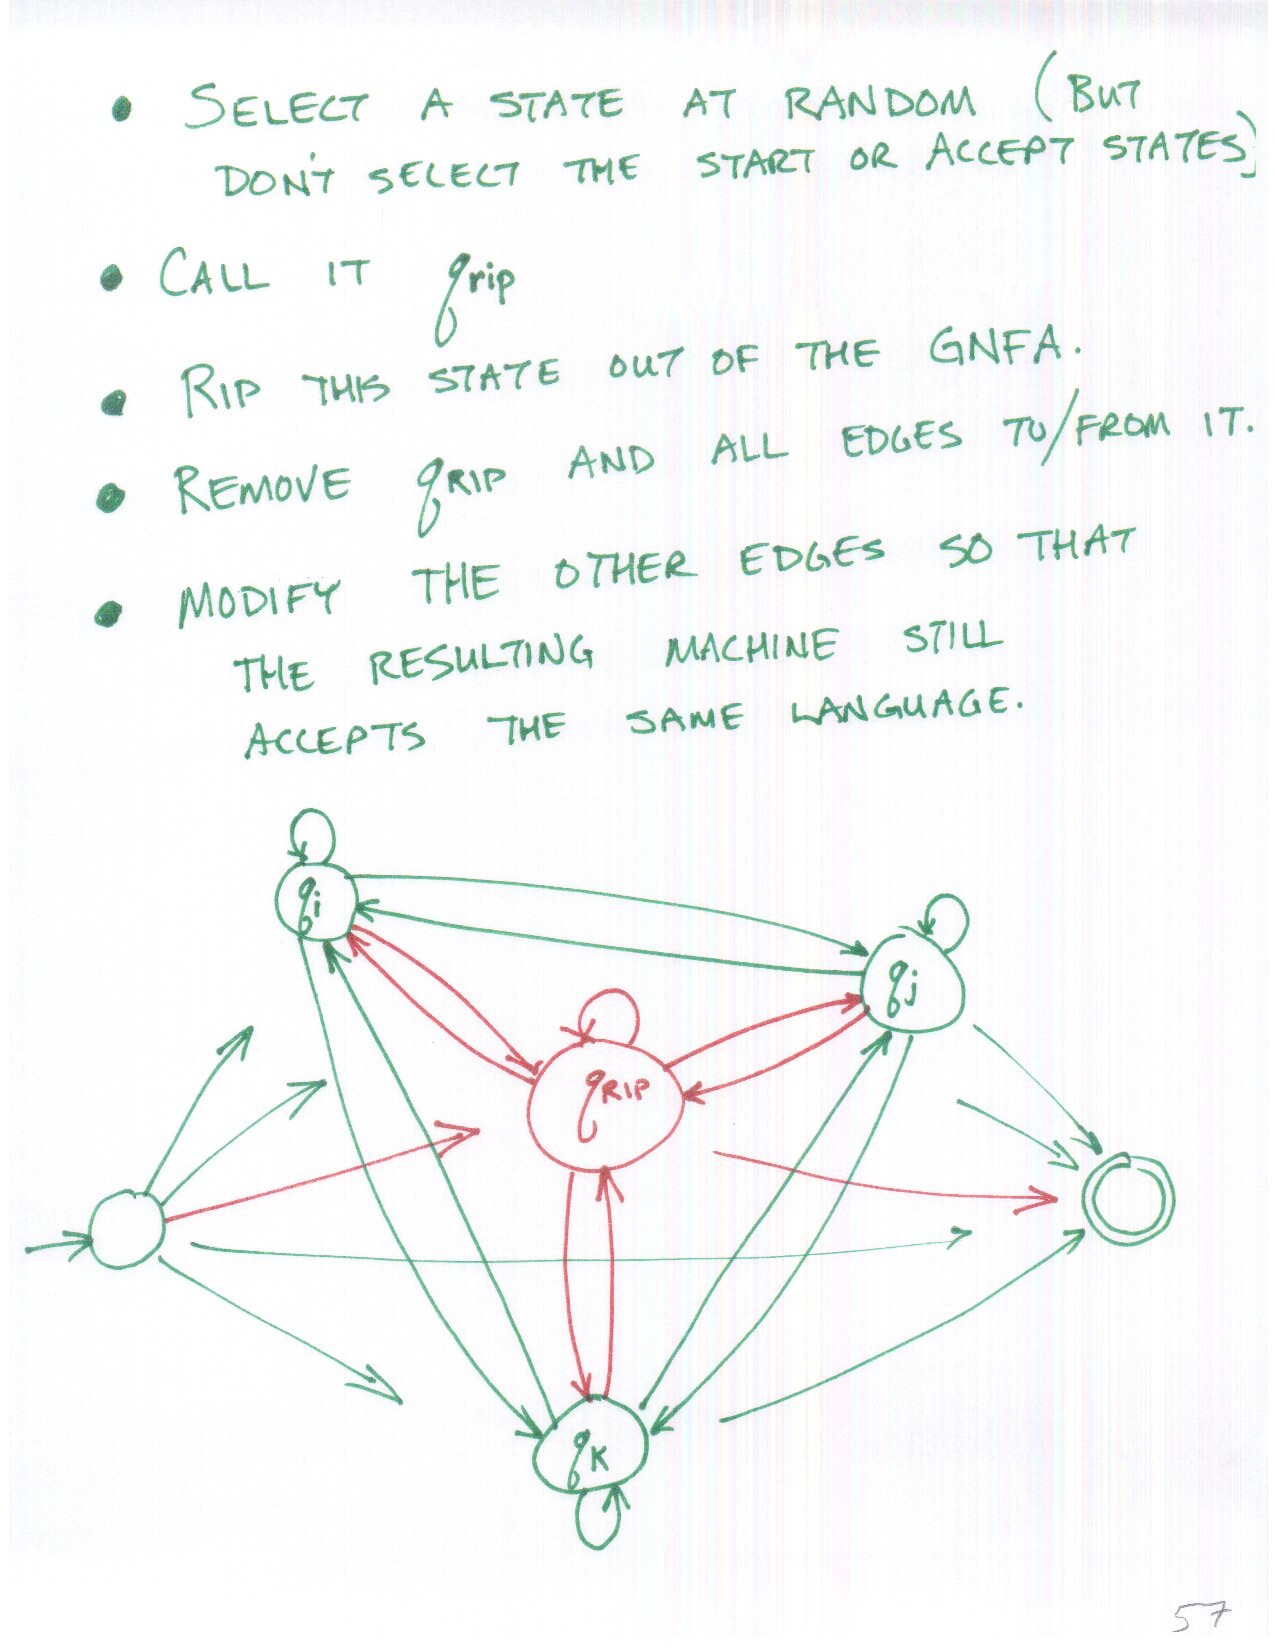 • SELECT A STATE AT RANDOM (BUT
DON'T SELECT THE START OR ACCEPT STATES)
• CALL IT qrip
• RIP THIS STATE OUT OF THE GNFA.
• REMOVE qRIP AND ALL EDGES TO/FROM IT.
• MODIFY THE OTHER EDGES SO THAT
THE RESULTING MACHINE STILL
ACCEPTS THE SAME LANGUAGE.
qi
qj
qRIP
qK
57